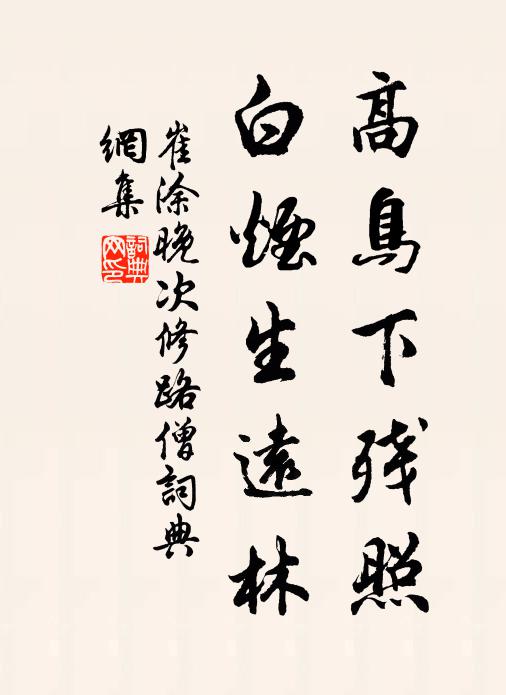 高鳥下殘照
白煙生遠林
崔涂晚次修路僧詞典
網集
詞典
网印